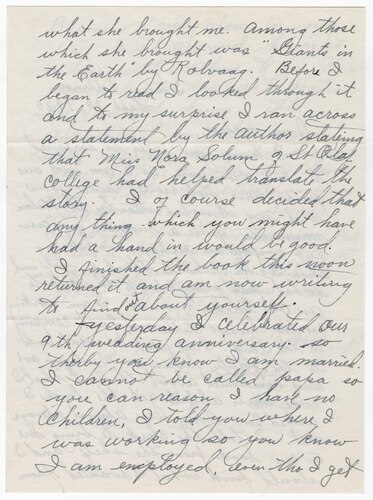 what she brought me. Among those
which she brought was "Giants in
the Earth" by Rolvaag. Before I
began to read I looked through it
and to my surprise I ran across
a statement by the author stating
that Miss Nora Solum of St. Olaf
college had helped translate the
story. I of course decided that
any thing which you might have
had a hand in would be good.
I finished the book this noon
returned it and am now writing
to find out about yourself.
Yesterday I celebrated our
9th wedding anniversary. so
therby you know I am married.
I cannot be called papa so
you can reason I have no
Children, I told you where I
was working so you know
I am employed, even tho I get